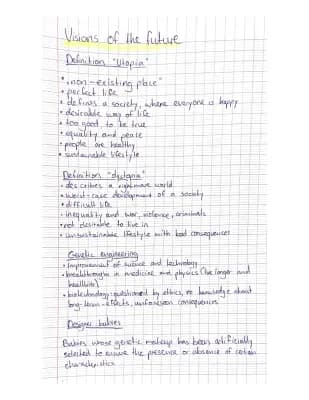 Visions of the future
Definition "Utopia"
• "non-existing place"
• perfect life
• defines a society, where everyone is happy
• desirable way of life
• too good to be true
• equality and peace
• people are healthy
• sustainable lifestyle
Definition "dystopia"
• describes a nightmare world
• worst-case development of a society
• difficult life
• inequality and war, violence, criminals
• not desirable to live in
• unsustainable lifestyle with bad consequences
Genetic engineering
• improvement of science and technology
• breakthroughs in medicine and physics (live longer and
healthier)
• biotechnology: questioned by ethics, no knowledge about
long-term-effects, unforeseen consequences
Designer babies
Babies whose genetic makeup has been artificially
selected to ensure the presence or absence of certain
characteristics